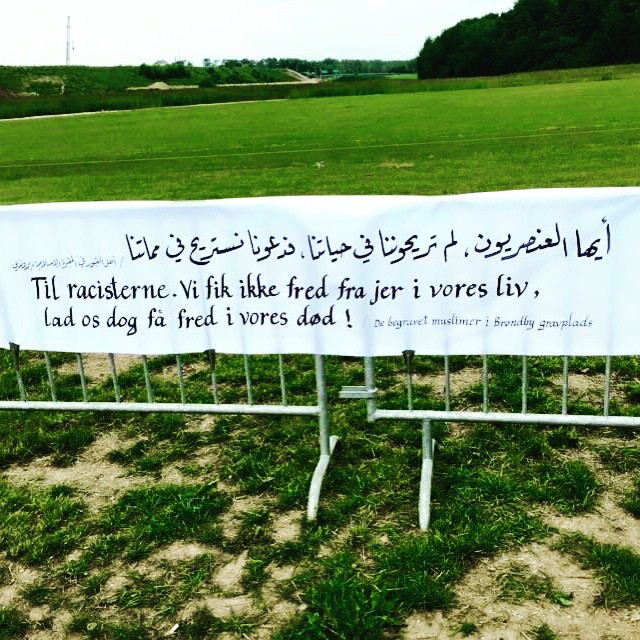 أيها العنصريون، لم تريحوننا في حياتنا، فدعونا نستريح في مماتنا
/ أهل القبور في المقبرة الإسلامية
Til racisterne. Vi fik ikke fred fra jer i vores liv,
lad os dog få fred i vores død ! / De begravet muslimer i Brøndby gravplads